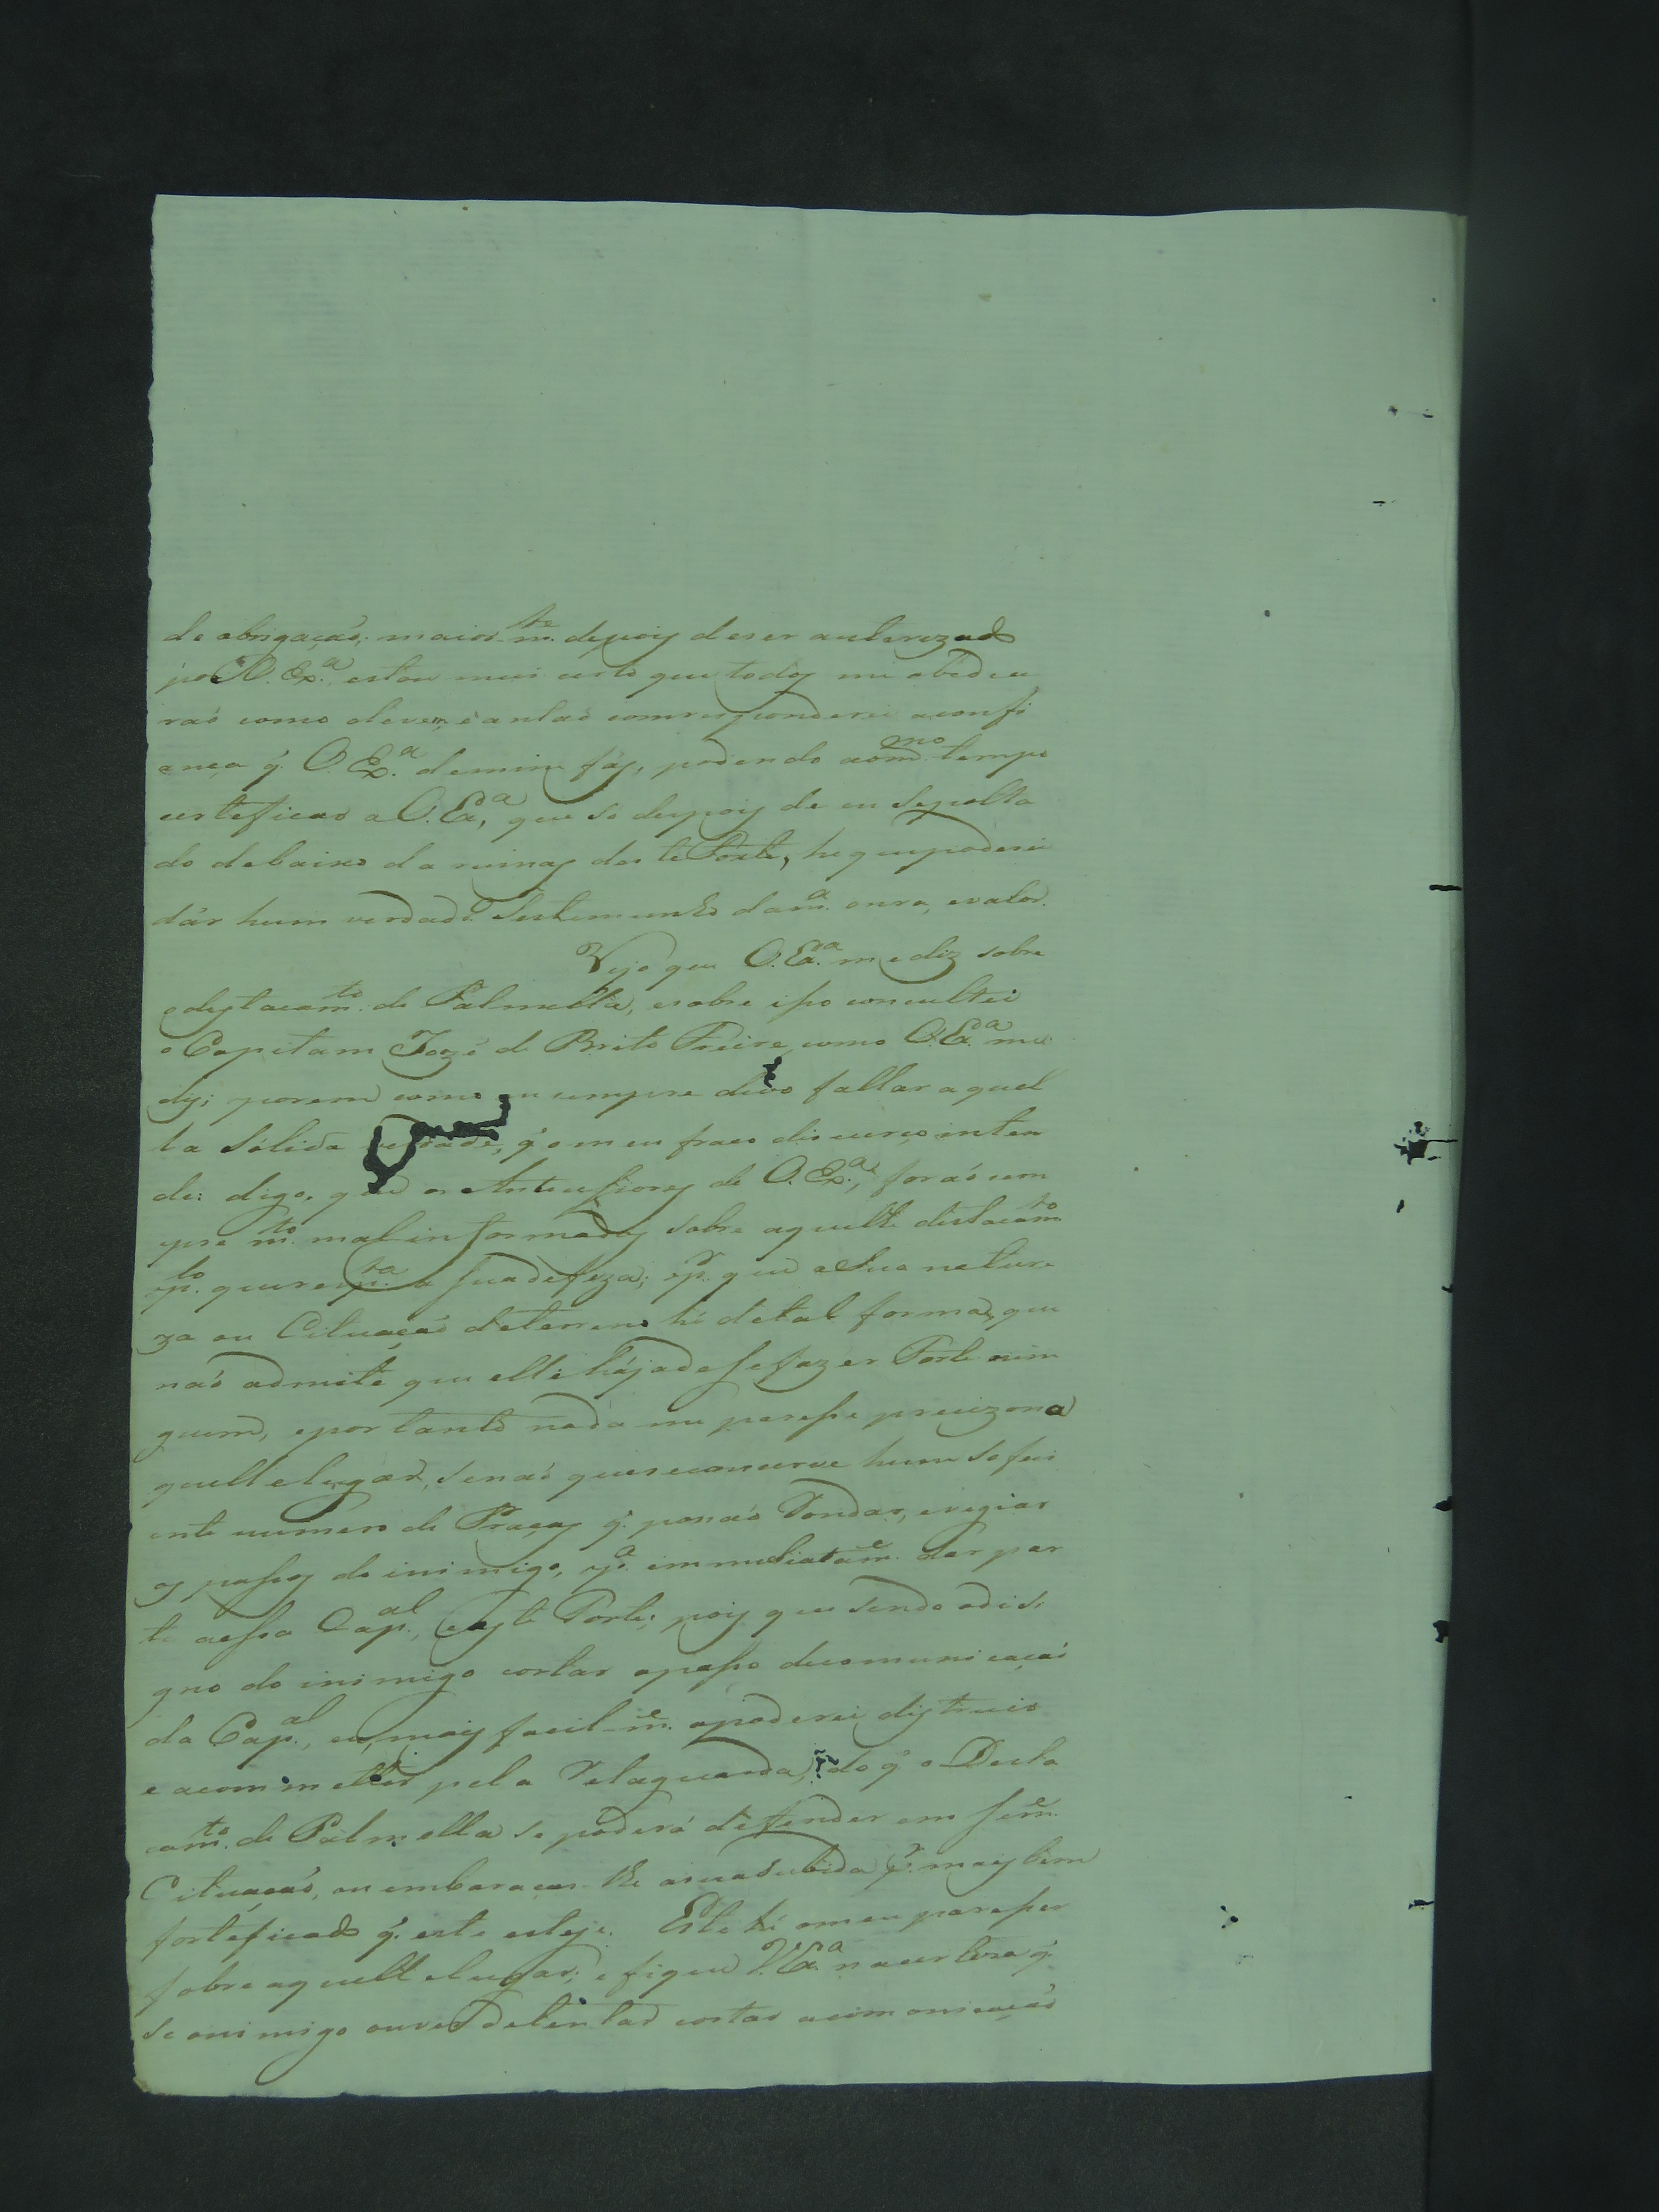 de obrigaçaó; maior m.te depoiz deser auterizado
por V. Ex.a, estou mui certo que todoz me obedece
raó como devem, e antaó comresponderei aconfi
ança q̃. V. Ex.a demim fáz, podendo aom.mo tempo
certeficar a V. Ex.a, que só depoiz de eu sepulta
do debaixo da ruinaz deste Forte, he que poderei
dár hum verdad.o testemunho dam.a onra, evalor.
Vejo que V. Ex.a mediz sobre
o deztacam.to de Palmella, esobre isso concultei
o Capitam Jozé de Brito Freire, como V. Ex.a me
diz; porem como eu cempre devo fallar aquel
la sólida verdade, q̃ omeu fraco discurço inten
de: digo, que os Antecessorez de V. Ex.a, foraó cem
pre m.to mal informadoz sobre aquelle distacam.to
p.lo que resp.ta a sua defeza; p.r que a Sua nature
za ou Cituaçaó deterreno hé detal forma, que
naó admite que elle hája dese fazer Forte nim
guem, eportanto nada me paresse precizo na
quelle lugar, senaó que seconcerve hum sofici
ente numero de Praçaz q̃. possaó Rondar, evegiar
oz passoz do inimigo, p.a immediatam.e dar par
te aessa Cap.al, eazte Forte; poiz que sendo odesi
gno do inimigo cortar opasso decomunicaçaó
da Cap.al, eu, maiz facilm.e opoderei diztruir
e acommetter pela Retaguarda, do q̃ o Desta
cam.to de Palmella se poderá defender em sem.e
Cituaçaó, ou embaraçar-lhe asua subida p.r maiz bem
forteficado q̃. este esteje. Este hé omeu paresser
sobre aquelle lugar; e fique V. Ex.a nacerteza q̃.
se onimigo ouver detentar cortar acomonicaçaó